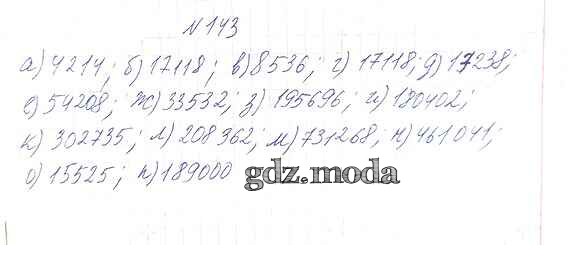 № 143
а) 4214; б) 17118; в) 8536; г) 17118; д) 17238;
е) 54208; ж) 33532; з) 195696; и) 180402;
к) 302735; л) 208362; м) 731268; н) 461041;
о) 15525; п) 189000 gdz.moda